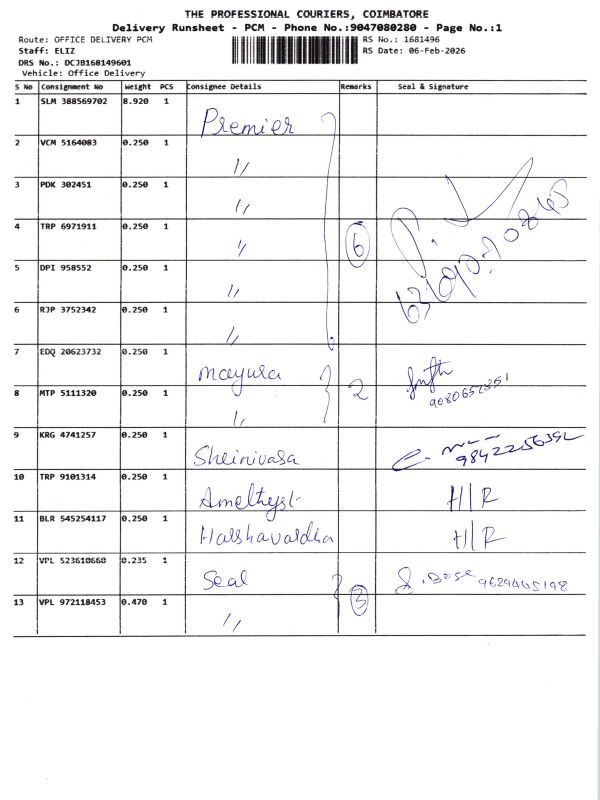 THE PROFESSIONAL COURIERS, COIMBATORE
Delivery Runsheet - PCM - Phone No.:9047080280 - Page No.:1
Route: OFFICE DELIVERY PCM
RS No.: 1681496
Staff: ELIZ
RS Date: 06-Feb-2026
DRS No.: DCJB168149601
Vehicle: Office Delivery
S No Consignment No Weight PCS Consignee Details Remarks Seal & Signature
1 SLM 388569702 8.920 1 Premier
2 VCM 5164083 0.250 1 "
3 PDK 302451 0.250 1 "
4 TRP 6971911 0.250 1 " 6
5 DPI 958552 0.250 1 "
6 RJP 3752342 0.250 1 "
7 EDQ 20623732 0.250 1 mayura
8 MTP 5111320 0.250 1 " 2
9 KRG 4741257 0.250 1 Sheinivasa
10 TRP 9101314 0.250 1 Amelthyst H/R
11 BLR 545254117 0.250 1 Harshavardha H/R
12 VPL 523610660 0.235 1 Seal 9629445198
13 VPL 972118453 0.470 1 " 3